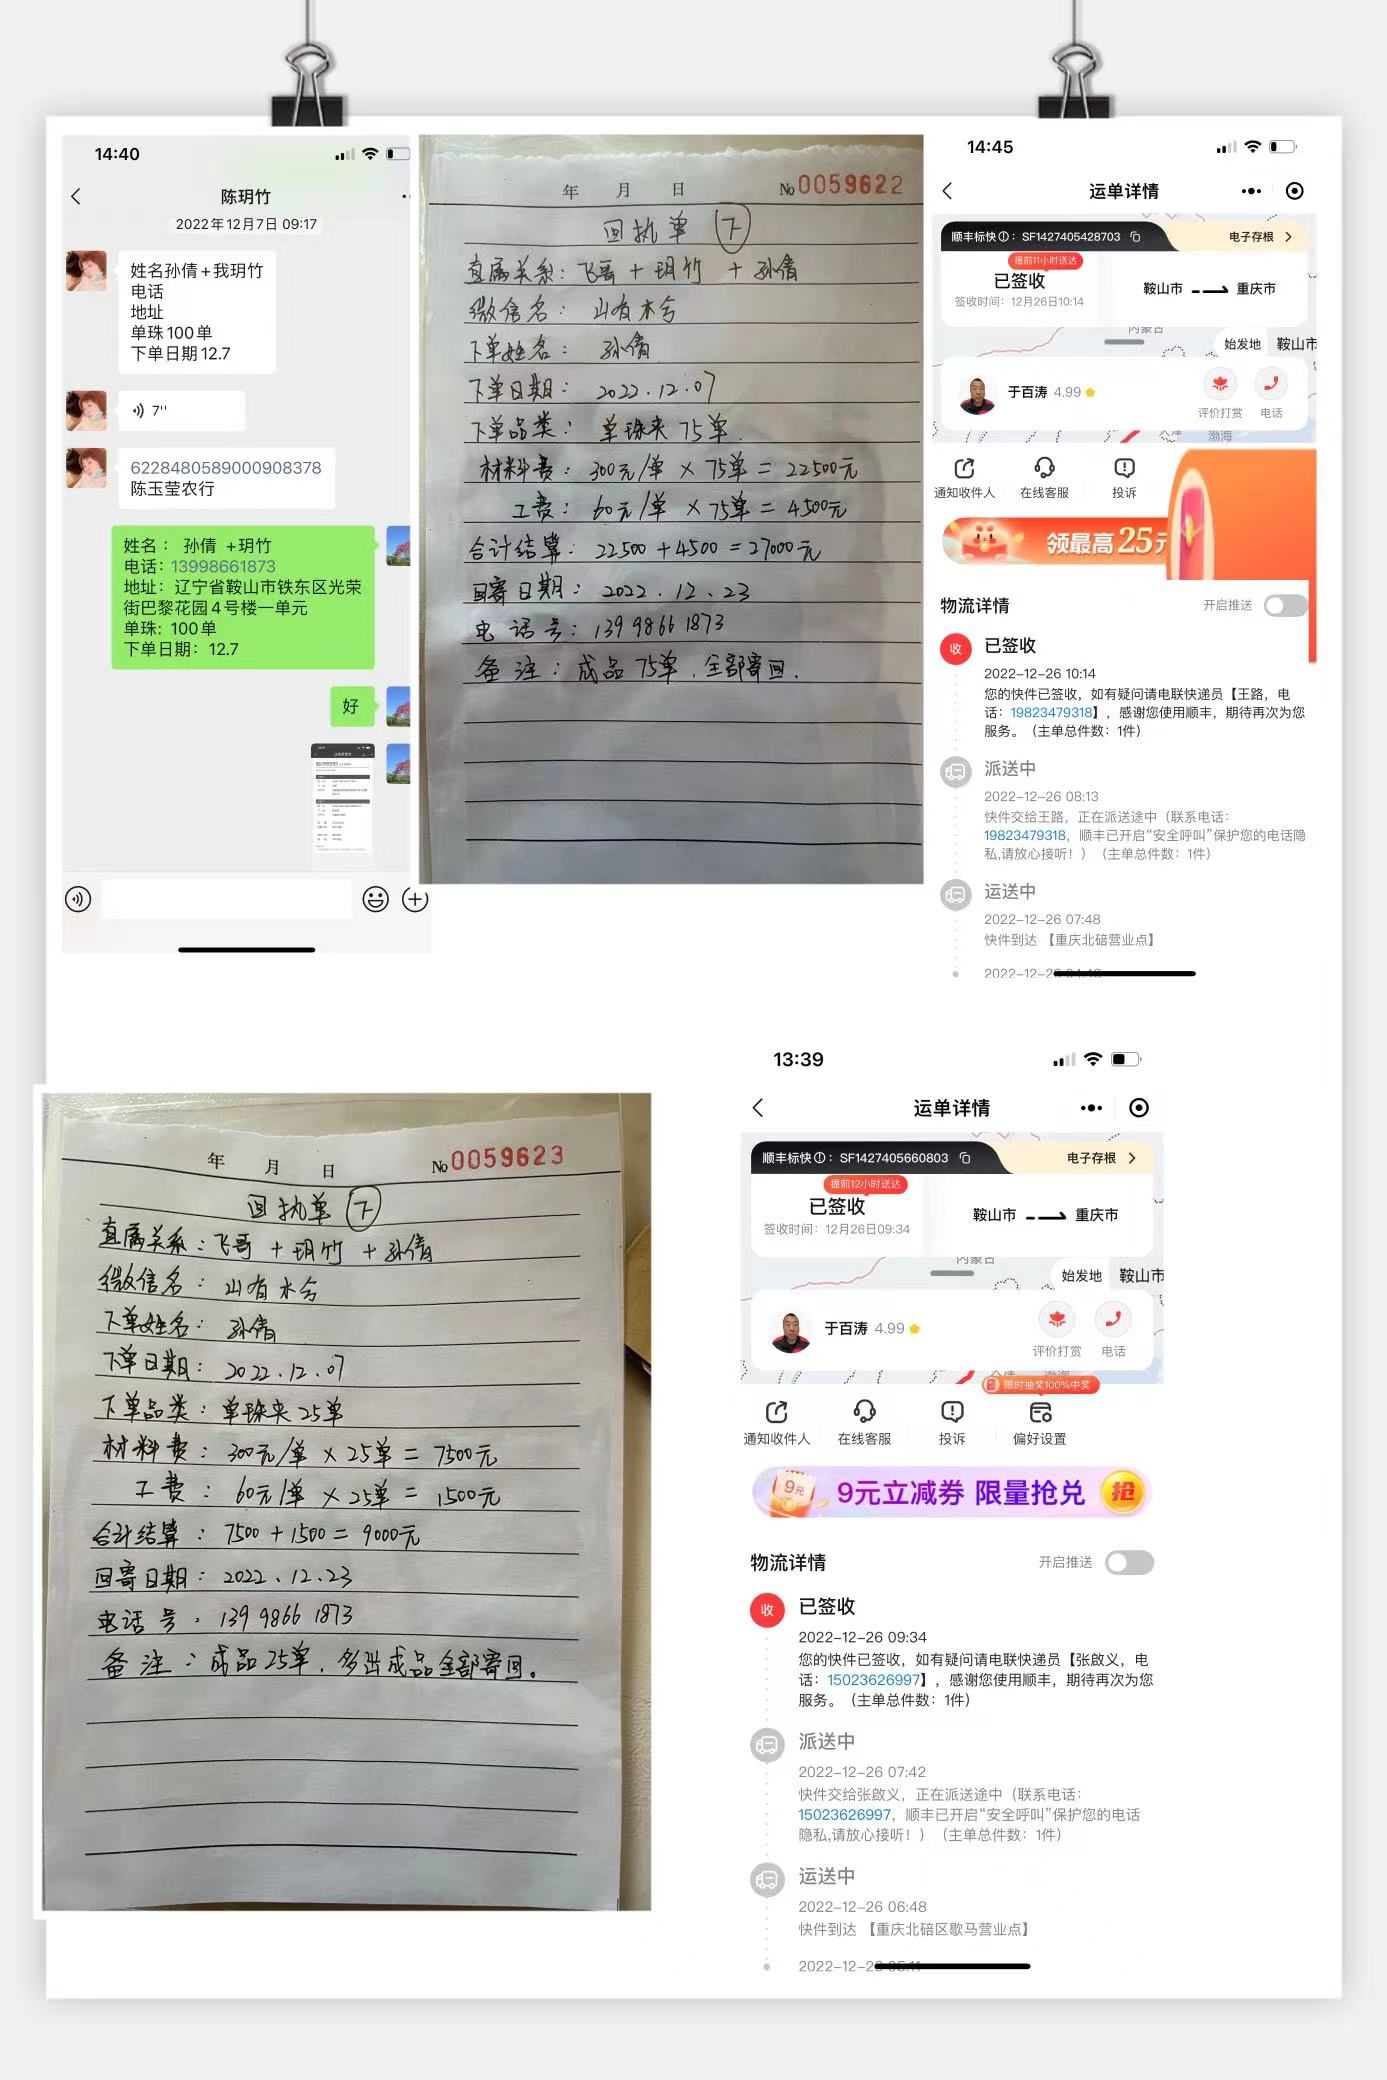 14:40
陈玥竹
2022年12月7日 09:17
姓名孙倩+我玥竹
电话
地址
单珠100单
下单日期12.7
7''
6228480589000908378
陈玉莹农行
姓名： 孙倩 +玥竹
电话：13998661873
地址：辽宁省鞍山市铁东区光荣
街巴黎花园4号楼一单元
单珠：100单
下单日期：12.7
好
年 月 日 No 0059622
回执单 下
直属关系：飞哥 + 玥竹 + 孙倩
微信名：山有木兮
下单姓名：孙倩
下单日期：2022.12.07
下单品类：单珠夹 75单
材料费：300元/单 × 75单 = 22500元
工费：60元/单 × 75单 = 4500元
合计结算：22500 + 4500 = 27000元
回寄日期：2022.12.23
电话号：139 9866 1873
备注：成品75单，全部寄回.
14:45
运单详情
顺丰标快：SF1427405428703
电子存根
提前11小时送达
已签收
签收时间：12月26日10:14
鞍山市
重庆市
内蒙古
始发地
鞍山市
于百涛 4.99
评价打赏
电话
天津
渤海
通知收件人
在线客服
投诉
领最高25元
物流详情
开启推送
收
已签收
2022-12-26 10:14
您的快件已签收，如有疑问请电联快递员【王路，电
话：19823479318】，感谢您使用顺丰，期待再次为您
服务。（主单总件数：1件）
派送中
2022-12-26 08:13
快件交给王路，正在派送途中（联系电话：
19823479318，顺丰已开启“安全呼叫”保护您的电话隐
私,请放心接听！）（主单总件数：1件）
运送中
2022-12-26 07:48
快件到达 【重庆北碚营业点】
年 月 日 No 0059623
回执单 下
直属关系：飞哥 + 玥竹 + 孙倩
微信名：山有木兮
下单姓名：孙倩
下单日期：2022.12.07
下单品类：单珠夹25单
材料费：300元/单 × 25单 = 7500元
工费：60元/单 × 25单 = 1500元
合计结算：7500 + 1500 = 9000元
回寄日期：2022.12.23
电话号：139 9866 1873
备注：成品25单，多出成品全部寄回。
13:39
运单详情
顺丰标快：SF1427405660803
电子存根
提前12小时送达
已签收
签收时间：12月26日09:34
鞍山市
重庆市
内蒙古
始发地
鞍山市
于百涛 4.99
评价打赏
电话
限时抽奖100%中奖
通知收件人
在线客服
投诉
偏好设置
9元
9元立减券 限量抢兑
抢
物流详情
开启推送
收
已签收
2022-12-26 09:34
您的快件已签收，如有疑问请电联快递员【张啟义，电
话：15023626997】，感谢您使用顺丰，期待再次为您
服务。（主单总件数：1件）
派送中
2022-12-26 07:42
快件交给张啟义，正在派送途中（联系电话：
15023626997，顺丰已开启“安全呼叫”保护您的电话
隐私,请放心接听！）（主单总件数：1件）
运送中
2022-12-26 06:48
快件到达 【重庆北碚区歇马营业点】